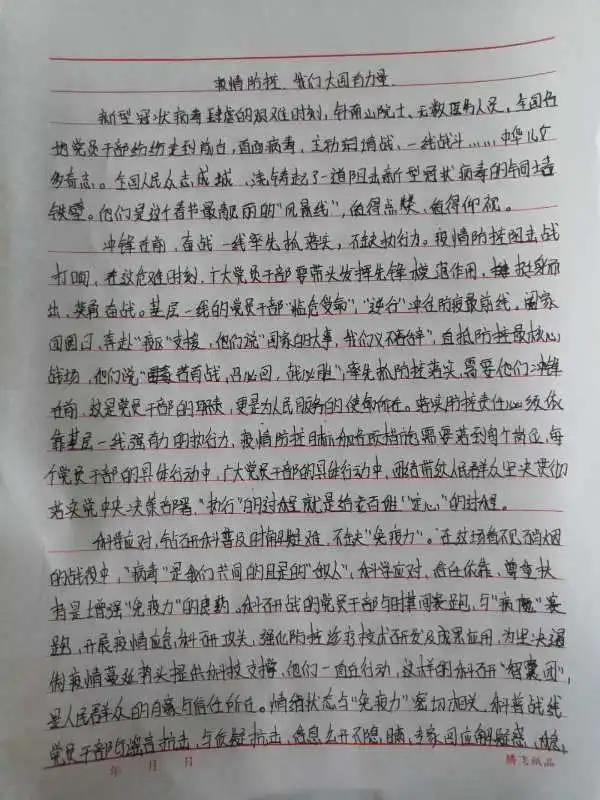 疫情防控、我们大国有力量
新型冠状病毒肆虐的艰难时刻，钟南山院士、无数医务人员、全国各
地党员干部纷纷走到前台，直面病毒，主动请战、一线战斗……中华儿女
多奇志。全国人民众志成城、浇铸起了一道阻击新型冠状病毒的铜墙
铁壁。他们是这个春节最靓丽的“风景线”，值得点赞、值得仰视。
冲锋在前、奋战一线率先抓落实，不缺执行力。疫情防控阻击战
打响，在这危难时刻，广大党员干部要带头发挥先锋模范作用，挺身而
出，英勇奋战。基层一线的党员干部“临危受命”，“逆行”冲在防疫最前线。阖家
团圆日，奔赴“疫区”支援，他们说“国家的大事，我们义不容辞”，直抵防控最核心
战场，他们说“若有战，召必回，战必胜”；率先抓防控落实，需要他们冲锋
在前，这是党员干部的职责，更是为人民服务的使命所在。落实防控责任必须依
靠基层一线强有力的执行力，疫情防控目标和各项措施需要落到每个岗位，每
个党员干部的具体行动中，广大党员干部的具体行动中，团结带领人民群众坚决贯彻
落实党中央决策部署，“执行”的过程就是给老百姓“定心”的过程。
科学应对，钻研科普及时解疑难，不缺“免疫力”。在这场看不见硝烟
的战役中，“病毒”是我们共同的且是的“敌人”，科学应对、信任依靠、尊重扶
持是增强“免疫力”的良药。科研战的党员干部与时间赛跑，与“病魔”赛
跑，开展疫情应急科研攻关，强化防控诊疗技术研发及成果应用，为坚决遏
制疫情蔓延势头提供科技支撑，他们一直在行动，这样的科研“智囊团”，
是人民群众的期盼与信任所在。情绪状态与“免疫力”密切相关，科普战线
党员干部与谣言抗击，与质疑抗击，信息公开不隐瞒，专家回应解疑惑，
年 月 日
腾飞纸品